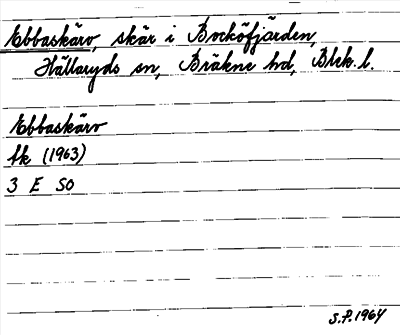 Ebbaskärv, skär i Bocköfjärden,
Hällaryds sn, Bräkne hd, Blek. l.
Ebbaskärv
fk (1963)
3 E SO
S.P. 1964